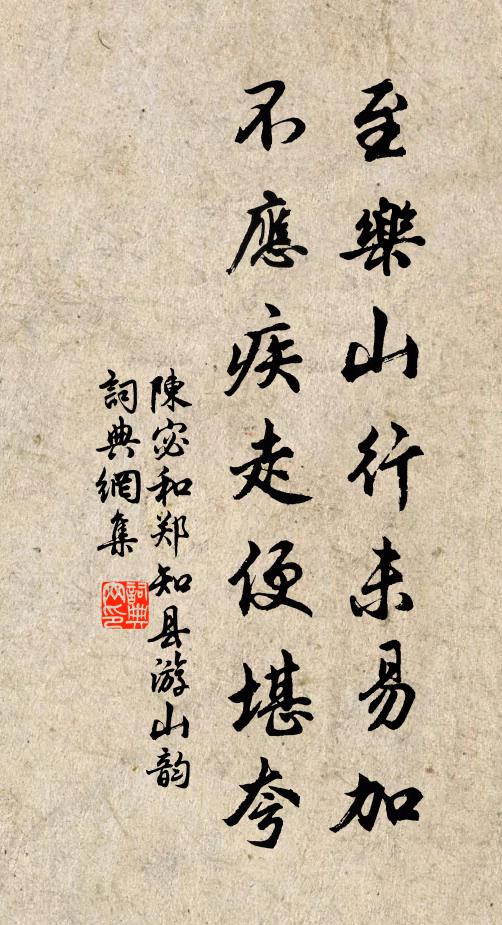 至樂山行未易加
不應疾走便堪夸
陳宓和郑知县游山韵
詞典網集
詞典
网印